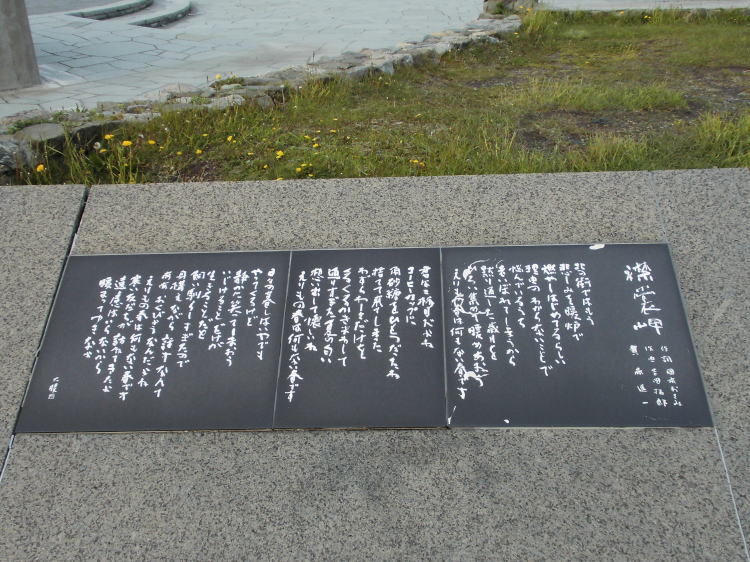 襟裳岬
作詞 岡本おさみ
作曲 吉田拓郎
森進一
北の街ではもう
悲しみを暖炉で
燃やしはじめてるらしい
理由のわからないことで
悩んでいるうち
老いぼれてしまうから
黙り通した歳月を
ひろい集めて暖めあおう
えりもの春は何もない春です
君は二杯目だよね
コーヒーカップに
角砂糖をひとつだったね
捨てて来てしまった
わずらわしさだけを
くるくるかきまわして
通りすぎた夏の匂い
想い出して懐しいね
えりもの春は何もない春です
日々の暮しはいやでも
やってくるけど
静かに笑ってしまおう
いじけることだけが
生きることだと
飼い馴らしすぎたので
身構えながら話すなんて
ああおくびょうなんだよね
えりもの春は何もない春です
寒い友だちが訪ねてきたよ
遠慮はいらないから
暖まってゆきなよ